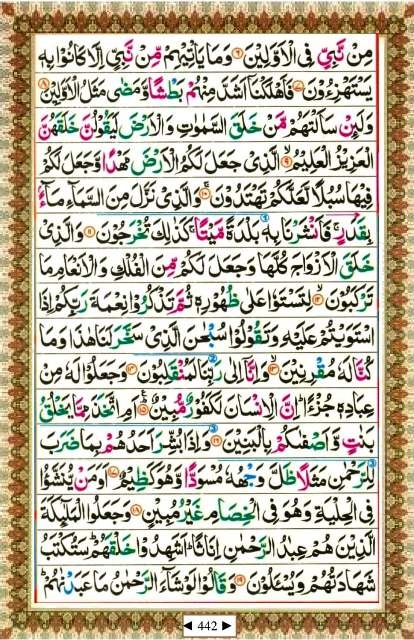 مِنْ نَّبِيٍّ فِي الْاَوَّلِيْنَ ۝۶ وَمَا يَاْتِيْهِمْ مِّنْ نَّبِيٍّ اِلَّا كَانُوْا بِهٖ
يَسْتَهْزِءُوْنَ ۝۷ فَاَهْلَكْنَاۤ اَشَدَّ مِنْهُمْ بَطْشًا وَّمَضٰى مَثَلُ الْاَوَّلِيْنَ ۝۸
وَلَىِٕنْ سَاَلْتَهُمْ مَّنْ خَلَقَ السَّمٰوٰتِ وَالْاَرْضَ لَيَقُوْلُنَّ خَلَقَهُنَّ
الْعَزِيْزُ الْعَلِيْمُ ۝۹ الَّذِيْ جَعَلَ لَكُمُ الْاَرْضَ مَهْدًا وَّجَعَلَ لَكُمْ
فِيْهَا سُبُلًا لَّعَلَّكُمْ تَهْتَدُوْنَ ۝۱۰ وَالَّذِيْ نَزَّلَ مِنَ السَّمَآءِ مَآءًۢ
بِقَدَرٍ ۚ فَاَنْشَرْنَا بِهٖ بَلْدَةً مَّيْتًا ۚ كَذٰلِكَ تُخْرَجُوْنَ ۝۱۱ وَالَّذِيْ
خَلَقَ الْاَزْوَاجَ كُلَّهَا وَجَعَلَ لَكُمْ مِّنَ الْفُلْكِ وَالْاَنْعَامِ مَا
تَرْكَبُوْنَ ۝۱۲ لِتَسْتَوٗا عَلٰى ظُهُوْرِهٖ ثُمَّ تَذْكُرُوْا نِعْمَةَ رَبِّكُمْ اِذَا
اسْتَوَيْتُمْ عَلَيْهِ وَتَقُوْلُوْا سُبْحٰنَ الَّذِيْ سَخَّرَ لَنَا هٰذَا وَمَا
كُنَّا لَهٗ مُقْرِنِيْنَ ۝۱۳ وَاِنَّاۤ اِلٰى رَبِّنَا لَمُنْقَلِبُوْنَ ۝۱۴ وَجَعَلُوْا لَهٗ مِنْ
عِبَادِهٖ جُزْءًا ؕ اِنَّ الْاِنْسَانَ لَكَفُوْرٌ مُّبِيْنٌ ۝۱۵ اَمِ اتَّخَذَ مِمَّا يَخْلُقُ
بَنٰتٍ وَّاَصْفٰىكُمْ بِالْبَنِيْنَ ۝۱۶ وَاِذَا بُشِّرَ اَحَدُهُمْ بِمَا ضَرَبَ
لِلرَّحْمٰنِ مَثَلًا ظَلَّ وَجْهُهٗ مُسْوَدًّا وَّهُوَ كَظِيْمٌ ۝۱۷ اَوَمَنْ يُّنَشَّؤُا
فِي الْحِلْيَةِ وَهُوَ فِي الْخِصَامِ غَيْرُ مُبِيْنٍ ۝۱۸ وَجَعَلُوا الْمَلٰٓىِٕكَةَ
الَّذِيْنَ هُمْ عِبٰدُ الرَّحْمٰنِ اِنَاثًا ؕ اَشَهِدُوْا خَلْقَهُمْ ؕ سَتُكْتَبُ
شَهَادَتُهُمْ وَيُسْـَٔلُوْنَ ۝۱۹ وَقَالُوْا لَوْ شَآءَ الرَّحْمٰنُ مَا عَبَدْنٰهُمْ ؕ
442